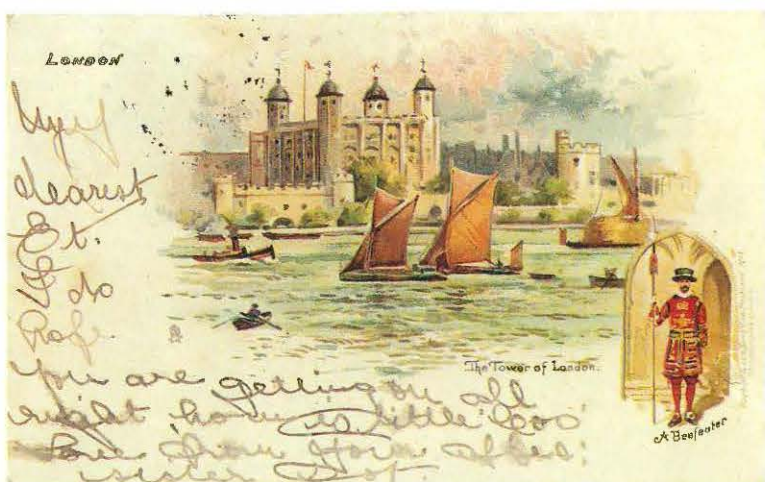 London
My
dearest
Et.
I do
hope
you are getting on all
right how is little
love from your affec:
sister Dot.
The Tower of London.
A Beefeater